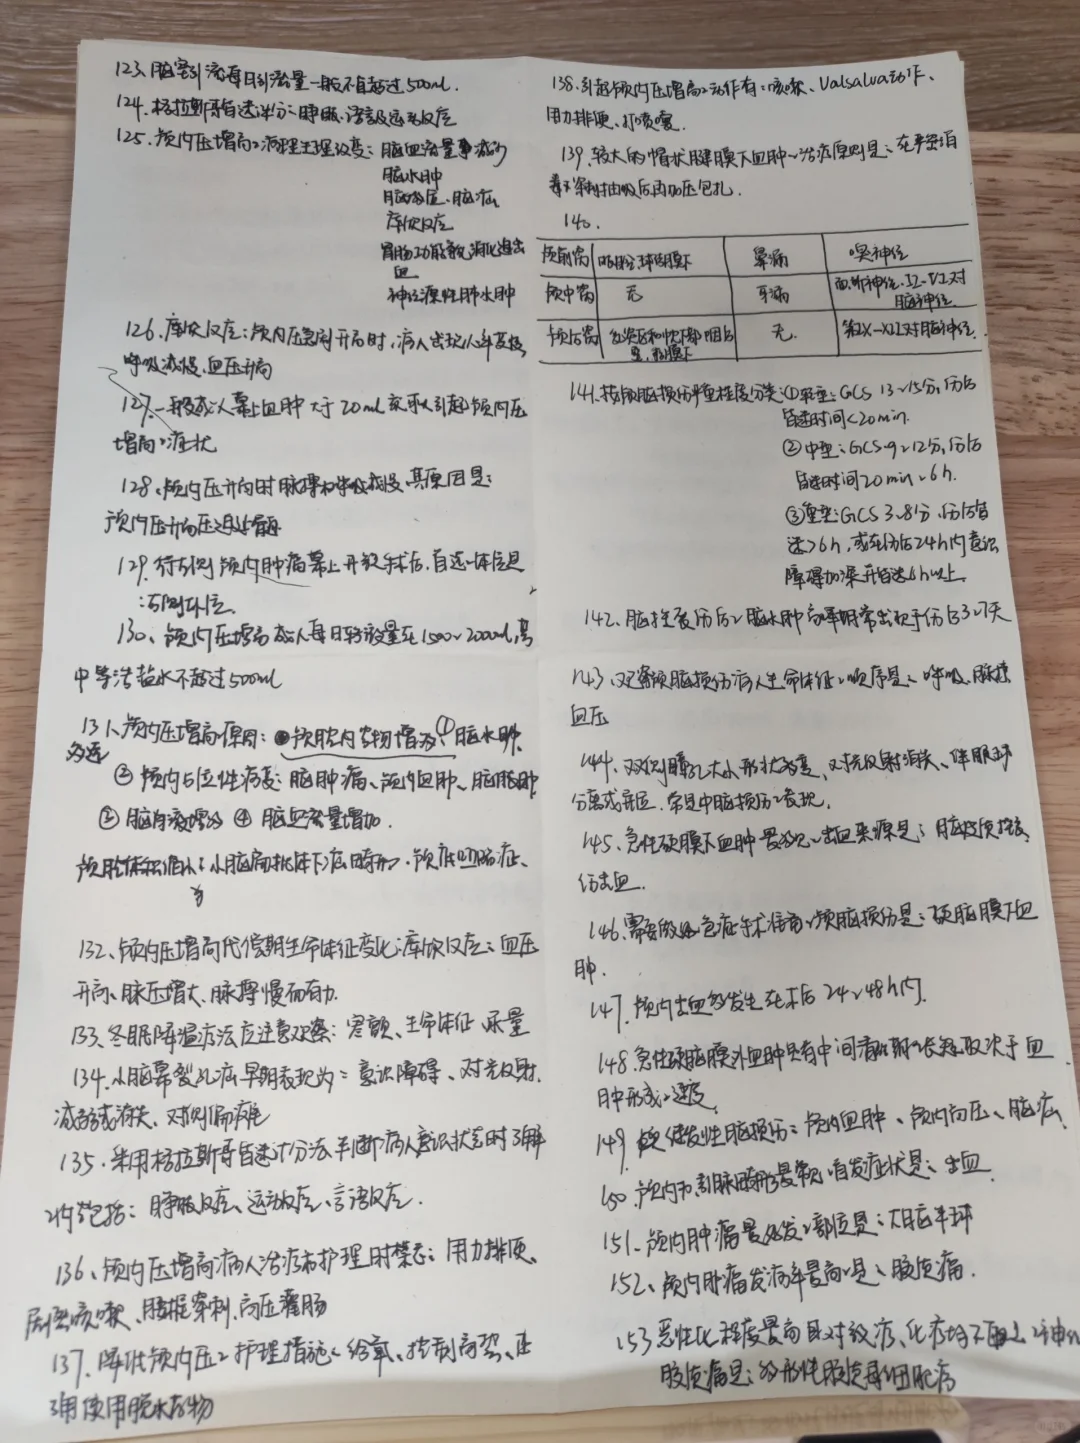 123、脑室引流每日引流量一般不宜超过500ml.
124、格拉斯哥昏迷评分:睁眼、语言及运动反应
125、颅内压增高:病理生理改变:脑血流量减少
脑水肿
脑移位、脑疝
库欣反应
胃肠功能紊乱消化道出
血
神经源性肺水肿
126、库欣反应:颅内压急剧升高时,病人出现心率变慢
呼吸减慢、血压升高
127、一般成人幕上血肿大于20ml就可引起颅内压
增高:症状
128、颅内压升高时脉搏和呼吸减慢,其原因是:
颅内压升高压迫延髓
129、行右侧颅内肿瘤幕上开颅术后,首选体位是
:左侧卧位.
130、颅内压增高成人每日输液量在1500~2000ml,其
中等渗盐水不超过500ml
131、颅内压增高原因:颅腔内容物增多:①脑水肿.
多见
②颅内占位性病变:脑肿瘤、颅内血肿、脑脓肿
③脑脊液增多 ④脑血流量增加.
颅腔体积缩小:小脑扁桃体下疝畸形、颅底凹陷症、
132、颅内压增高代偿期生命体征变化:库欣反应:血压
升高、脉压增大、脉搏慢而有力.
133、冬眠降温疗法应注意观察:寒颤、生命体征 尿量
134、小脑幕裂孔疝早期表现为:意识障碍、对光反射.
减弱或消失、对侧偏瘫
135、采用格拉斯哥昏迷计分法判断病人意识状态时 3个解
计分包括:睁眼反应、运动反应、言语反应.
136、颅内压增高:病人治疗和护理时禁忌:用力排便、
剧烈咳嗽、腰椎穿刺、高压灌肠
137、降低颅内压:护理措施:给氧、控制高热、正
确使用脱水药物
138、引起颅内压增高:动作有:咳嗽、Valsalva动作、
用力排便、打喷嚏.
139、较大的帽状腱膜下血肿:治疗原则是:在严密消
毒下穿刺抽吸后再加压包扎.
140.
颅前窝 眶部、球结膜下 鼻漏 嗅神经
颅中窝 无 耳漏 面、听神经、II-VI对
脑神经
颅后窝 乳突区和枕下部 咽后
壁、黏膜下 无. 第IX-XII对脑神经.
141、按颅脑损伤严重程度分类:①轻型:GCS 13~15分,伤后
昏迷时间<20min.
②中型:GCS 9~12分,伤后
昏迷时间20min~6h.
③重型:GCS 3~8分,伤后昏
迷>6h,或在伤后24h内意识
障碍加深再昏迷6h以上
142、脑挫裂伤后:脑水肿高峰期常出现于伤后3~7天
143、观察颅脑损伤病人生命体征:顺序是:呼吸、脉搏
血压
144、双侧瞳孔大小形状多变、对光反射消失、伴眼球
分离或异位.常是中脑损伤:表现.
145、急性硬膜下血肿最多见:出血来源是:脑皮质挫裂
伤出血.
146、需要做好急症手术准备:颅脑损伤是:硬脑膜下血
肿.
147、颅内出血多发生在术后24~48h内.
148、急性硬脑膜外血肿具有中间清醒期:长短,取决于血
肿形成:速度
149、继发性脑损伤:颅内血肿、颅内高压、脑疝
150、颅内动静脉畸形最常见首发症状是:出血.
151、颅内肿瘤最好发:部位是:大脑半球
152、颅内肿瘤发病率最高:是:胶质瘤.
153 恶性化程度最高且对放疗、化疗均不敏感:神经
胶质瘤是:多形性胶质母细胞瘤